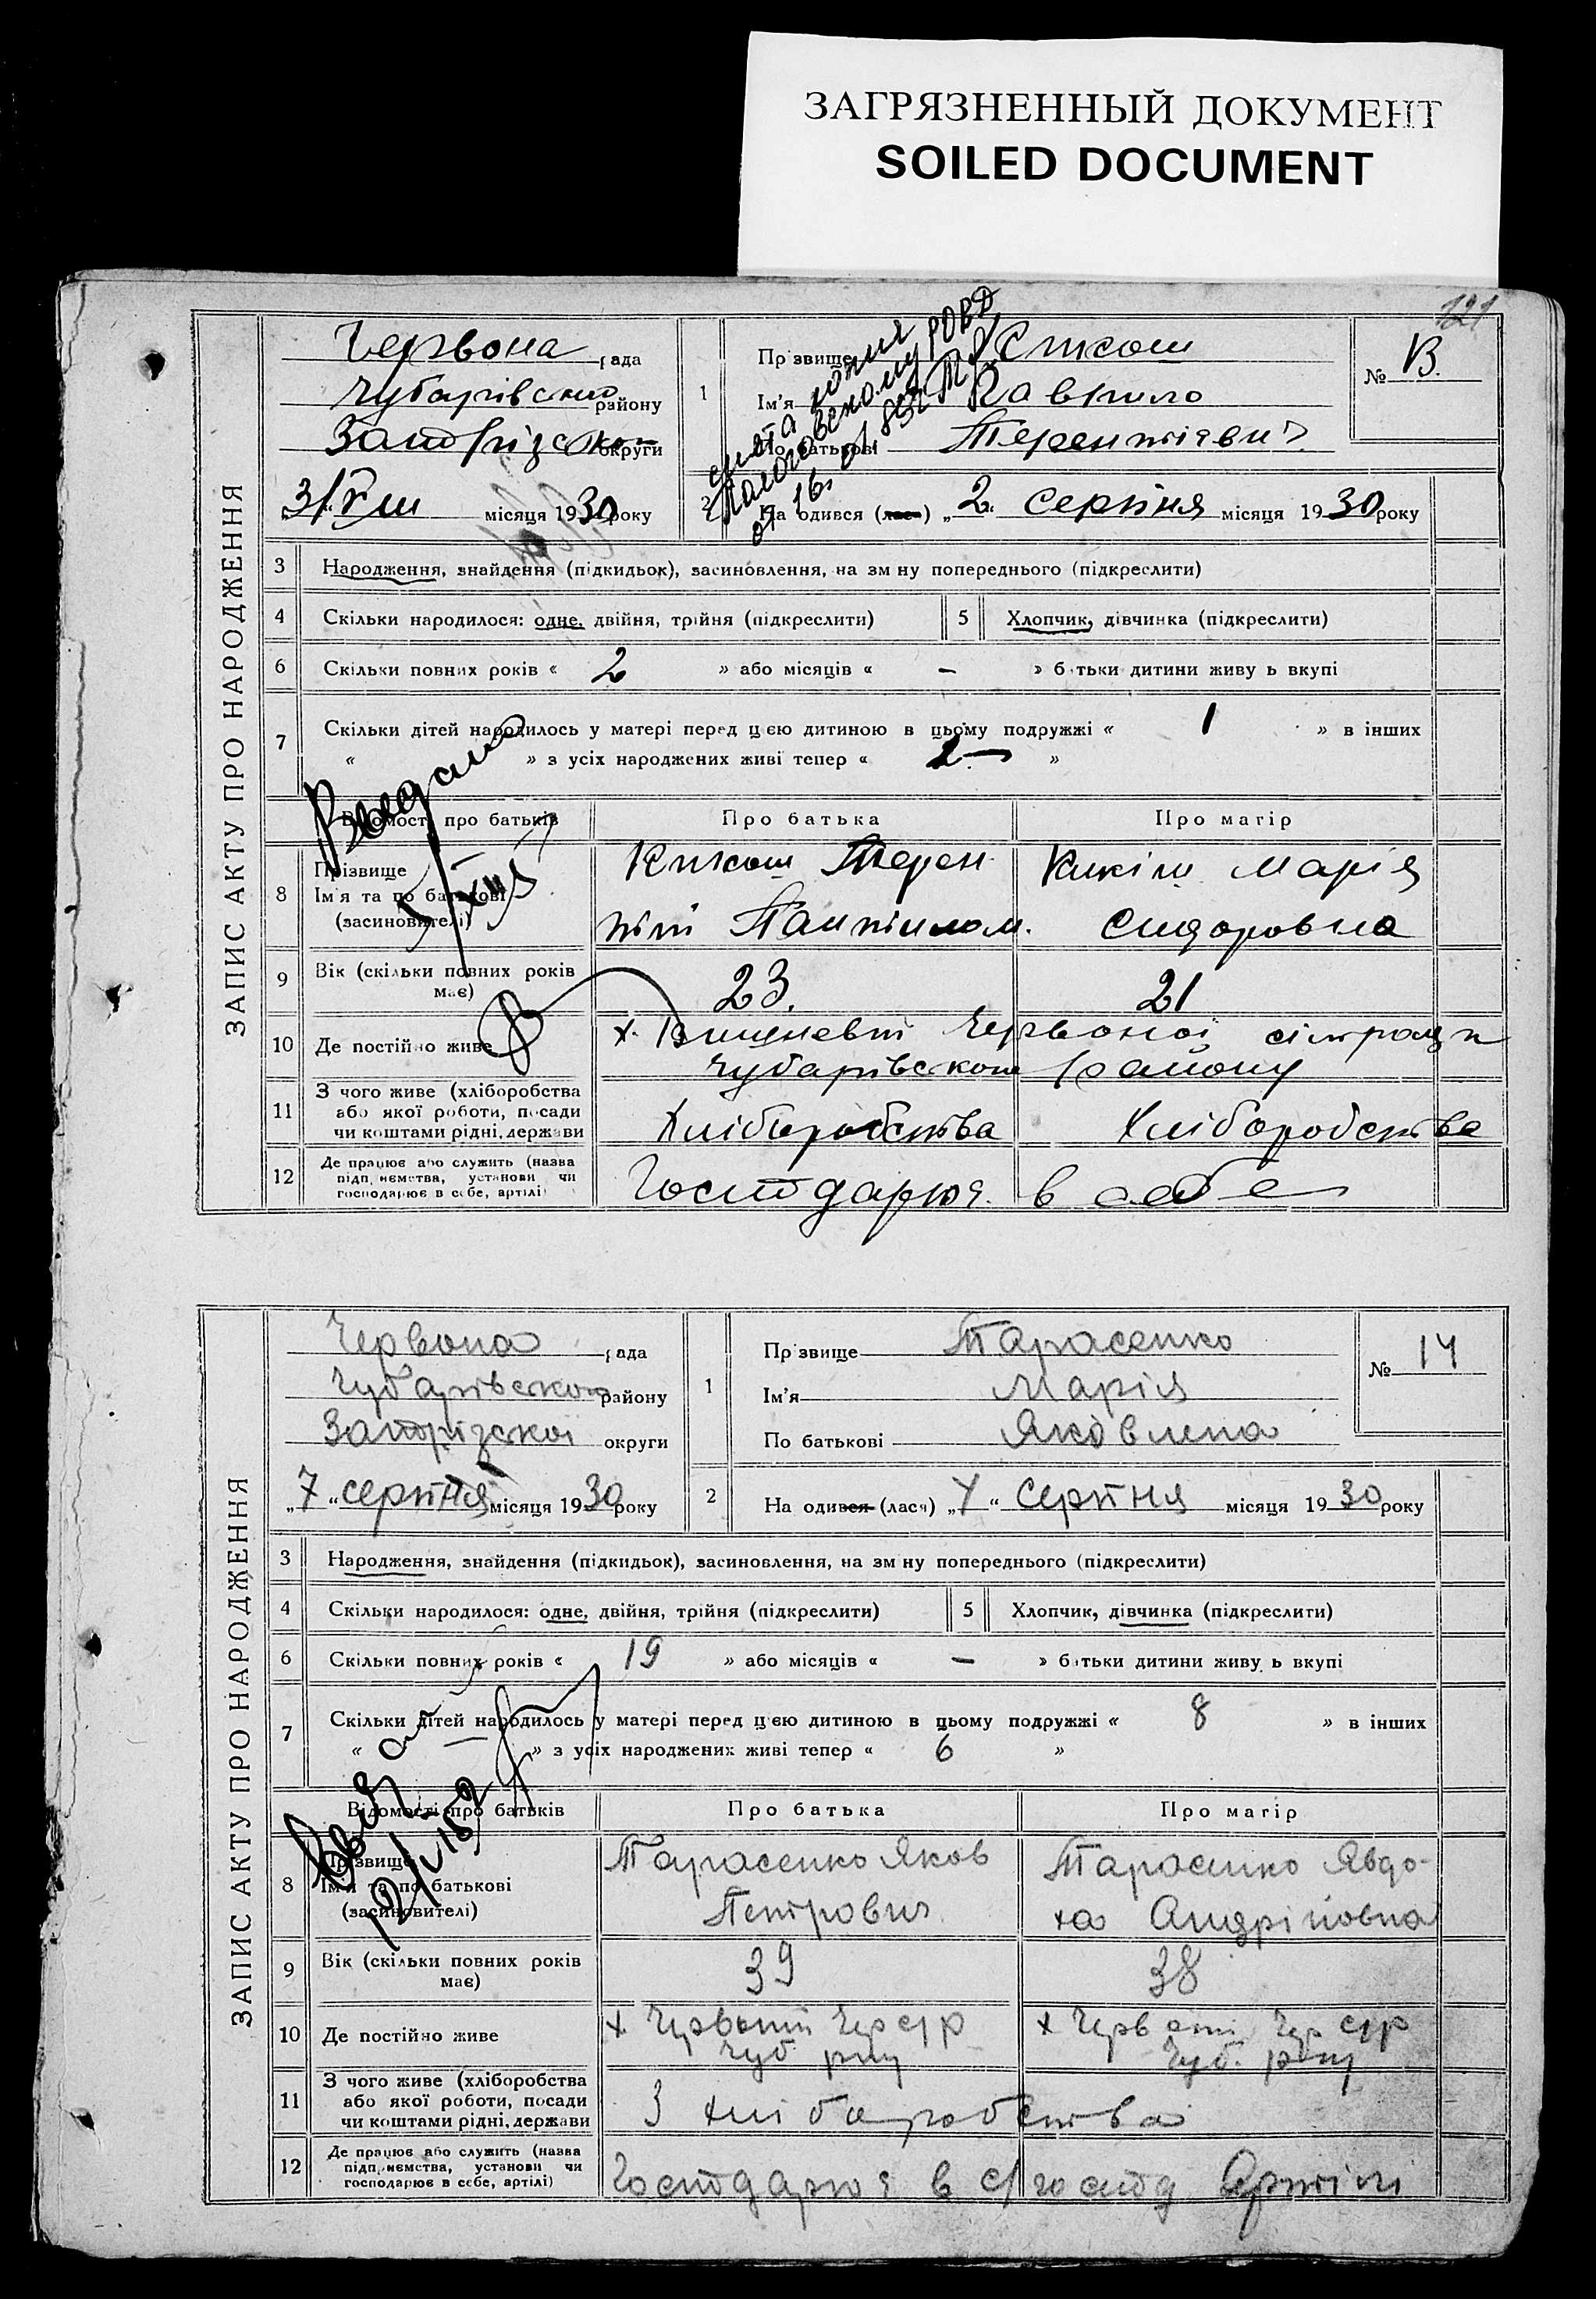 ЗАГРЯЗНЕННЫЙ ДОКУМЕНТ
SOILED DOCUMENT
121
ЗАПИС АКТУ ПРО НАРОДЖЕННЯ
Червона рада
Чубарівського району
округи
31/VIII місяця 1930 року
1 Прізвище
Ім'я Гаврило
По батькові Терентіявич
№ 13.
2 На одився (лась) „2“ серпня місяця 1930 року
3 Народження, знайдення (підкидьок), засиновлення, на зм ну попереднього (підкреслити)
4 Скільки народилося: одне, двійня, трійня (підкреслити) 5 Хлопчик, дівчинка (підкреслити)
6 Скільки повних років « 2 » або місяців « — » батьки дитини живу ь вкупі
7 Скільки дітей народилось у матері перед цією дитиною в цьому подружжі « 1 » в інших
« » з усіх народжених живі тепер « »
Видано
Відомості про батьків Про батька Про матір
8 Прізвище
Ім'я та по батькові
(засиновителі)
Марія
Сидоровна
9 Вік (скільки повних років має) 23. 21
10 Де постійно живе х. Червоної сільради
Чубарівського району
11 З чого живе (хліборобства або якої роботи, посади чи коштами рідні, держави Хліборобства Хліборобства
12 Де працює або служить (назва підп иємства, установи чи господарює в себе, артілі) Господарює в себе
ЗАПИС АКТУ ПРО НАРОДЖЕННЯ
Червона рада
Чубарівського району
Запорізскої округи
„7“ серпня місяця 1930 року
1 Прізвище Тарасенко
Ім'я Марія
По батькові Яковлена
№ 14
2 На одився (лася) „ “ серпня місяця 1930 року
3 Народження, знайдення (підкидьок), засиновлення, на зм ну попереднього (підкреслити)
4 Скільки народилося: одне, двійня, трійня (підкреслити) 5 Хлопчик, дівчинка (підкреслити)
6 Скільки повних років « 19 » або місяців « — » батьки дитини живу ь вкупі
7 Скільки дітей народилось у матері перед цією дитиною в цьому подружжі « 8 » в інших
« — » з усіх народжених живі тепер « 6 »
Відомості про батьків Про батька Про матір
8 Прізвище
Ім'я та по батькові
(засиновителі)
Тарасенко Яков
Петрович
Тарасенко Явдо-
ха Андріївна
9 Вік (скільки повних років має) 39 38
10 Де постійно живе х. Чер с/р х Чер с/р
Чуб. р-ну Чуб. р-ну
11 З чого живе (хліборобства або якої роботи, посади чи коштами рідні, держави З хліборобства
12 Де працює або служить (назва підп иємства, установи чи господарює в себе, артілі) Господарює в с/господ Артілі